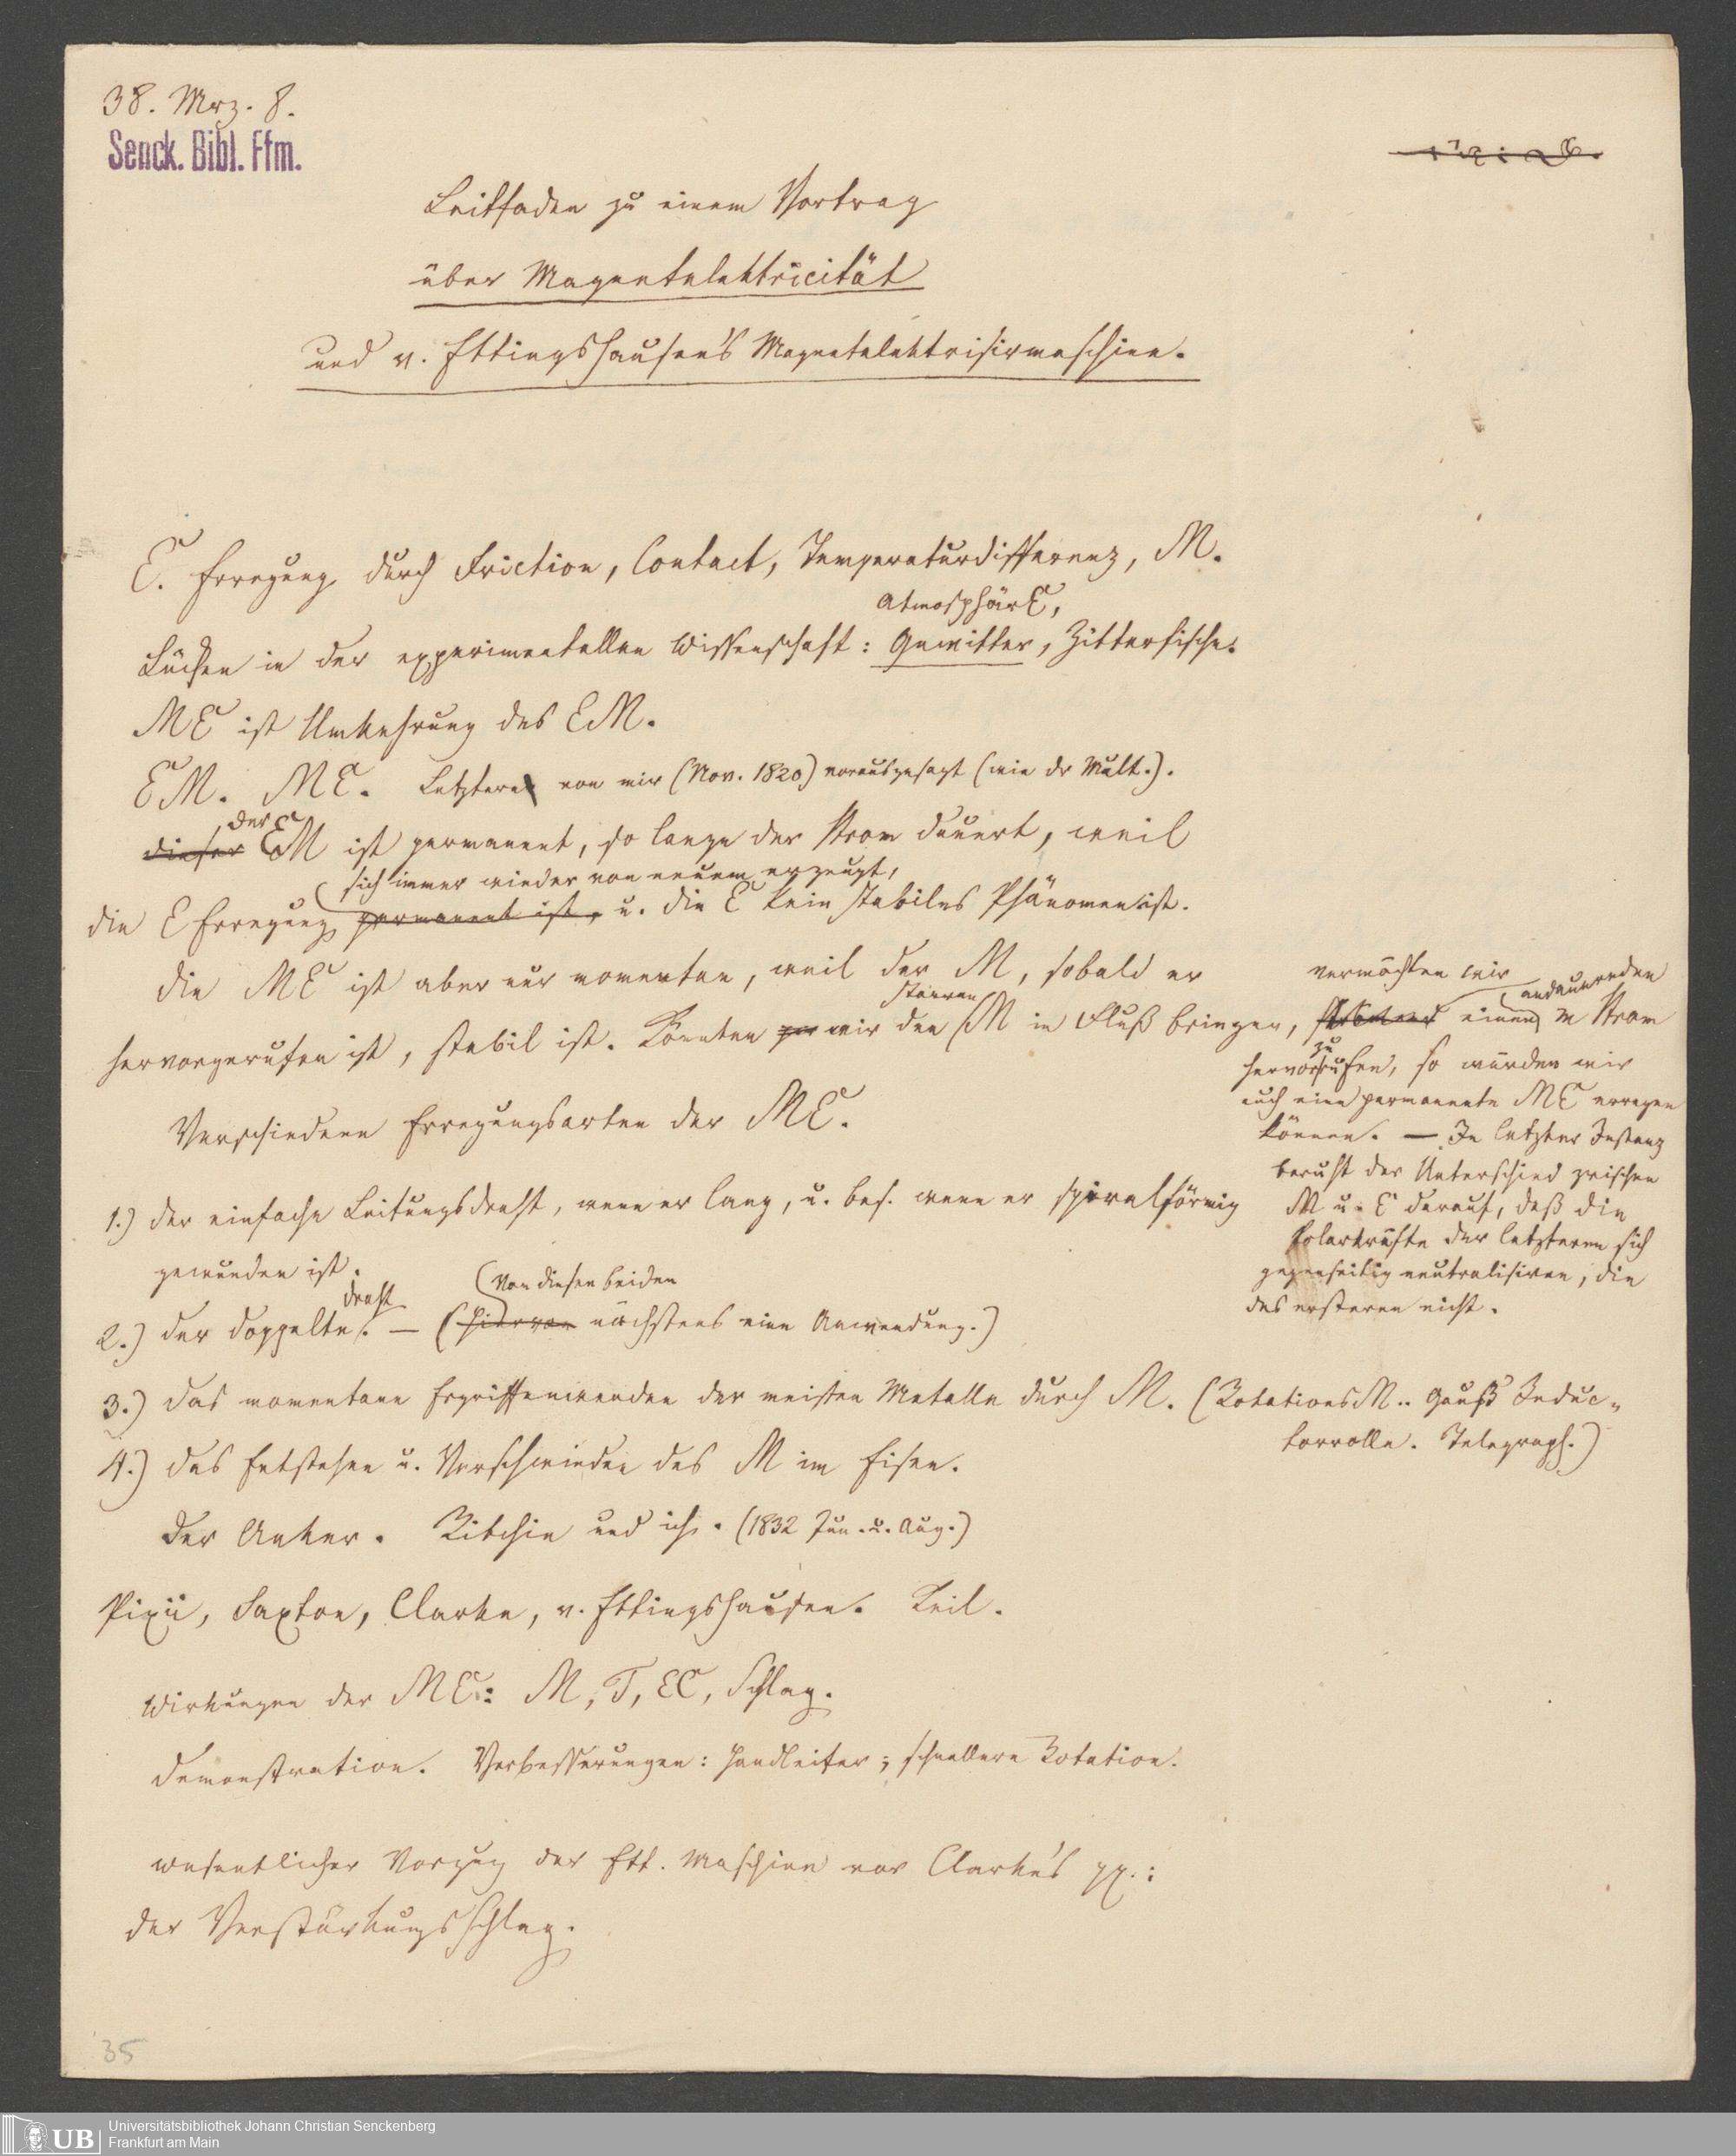 38. Mrz. 8.
Senck. Bibl. Ffm.
Leitfaden zu einem Vortrag
über Magnetelektricität
und v. Ettingshausen's Magnetelektrisirmaschine.
E. Erregung durch Friction, Contact, Temperaturdifferenz, M.
AtmosphärE,
Lücken in der experimentellen Wissenschaft: Gewitter, Zitterfische.
ME ist Umkehrung des EM.
EM. ME. Letztere von mir (Nov. 1820) vorausgesagt (wie dr Mult.).
der
dieser EM ist permanent, so lange der Strom dauert, weil
sich immer wieder von neuem erzeugt,
die E Erregung permanent ist, u. die E kein stabiles Phänomen ist.
die ME ist aber nur momentan, weil der M, sobald er
starren
hervorgerufen ist, stabil ist. Könnten wir den M in Fluß bringen,
vermöchten wir
andauernden
einen M Strom
zu
hervorrufen, so würden wir
auch eine permanente ME erregen
können. — In letzter Instanz
beruht der Unterschied zwischen
M u. E darauf, daß die
Polarkräfte der letzteren sich
gegenseitig neutralisiren, die
des ersteren nicht.
Verschiedene Erregungsarten der ME.
1.) der einfache Leitungsdraht, wenn er lang, u. bes. wenn er spiralförmig
gewunden ist.
draht
Von diesen beiden
2.) der doppelte. — (hiervon nächstens eine Anwendung.)
3.) das momentane Ergriffenwerden der meisten Metalle durch M. (RotationsM.. Gauß Induc-
torrolle. Telegraph.)
4.) das Entstehen u. Verschwinden des M im Eisen.
Der Anker. Ritchie und ich. (1832 Jun. u. Aug.)
Pixii, Saxton, Clarke, v. Ettingshausen. Keil.
Wirkungen der ME: M, T, EC, Schlag.
Demonstration. Verbesserungen: Handleiter; schnellere Rotation.
wesentlicher Vorzug der Ett. Maschine vor Clarke's pp.:
der Verstärkungsschlag.
35
UB
Universitätsbibliothek Johann Christian Senckenberg
Frankfurt am Main